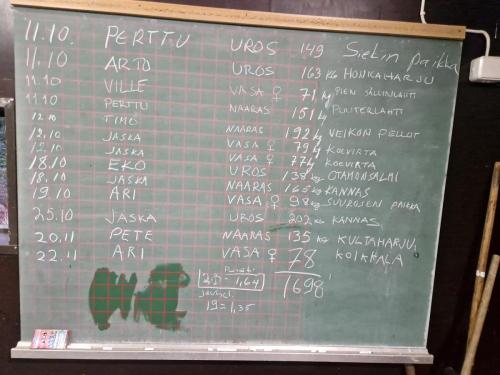 11.10. PERTTU UROS 149 Siekin paikka
11.10 ARTO UROS 163 KG HONKAHARJU
11.10 VILLE VASA ♀ 71 kg PIEN SÄLLINLAHTI
11.10 PERTTU NAARAS 151 kg PUUTERLAHTI
12.10 TIMO NAARAS 192 kg VEIKON PELLOT
12.10 JASKA VASA ♀ 79 kg KOEVIRTA
12.10 JASKA VASA ♀ 77 kg KOEVIRTA
18.10 EKO UROS 138 kg OTAMONSALMI
18.10 JASKA NAARAS 165 kg KANNAS
19.10 ARI VASA ♀ 98 kg SUUROJEN PAIKKA
25.10 JASKA UROS 202 KG KANNAS
20.11 PETE NAARAS 135 KG KULTAHARJU
22.11 ARI VASA ♀ 78 KOIKKALA
1698
1,64
19 = 1,35